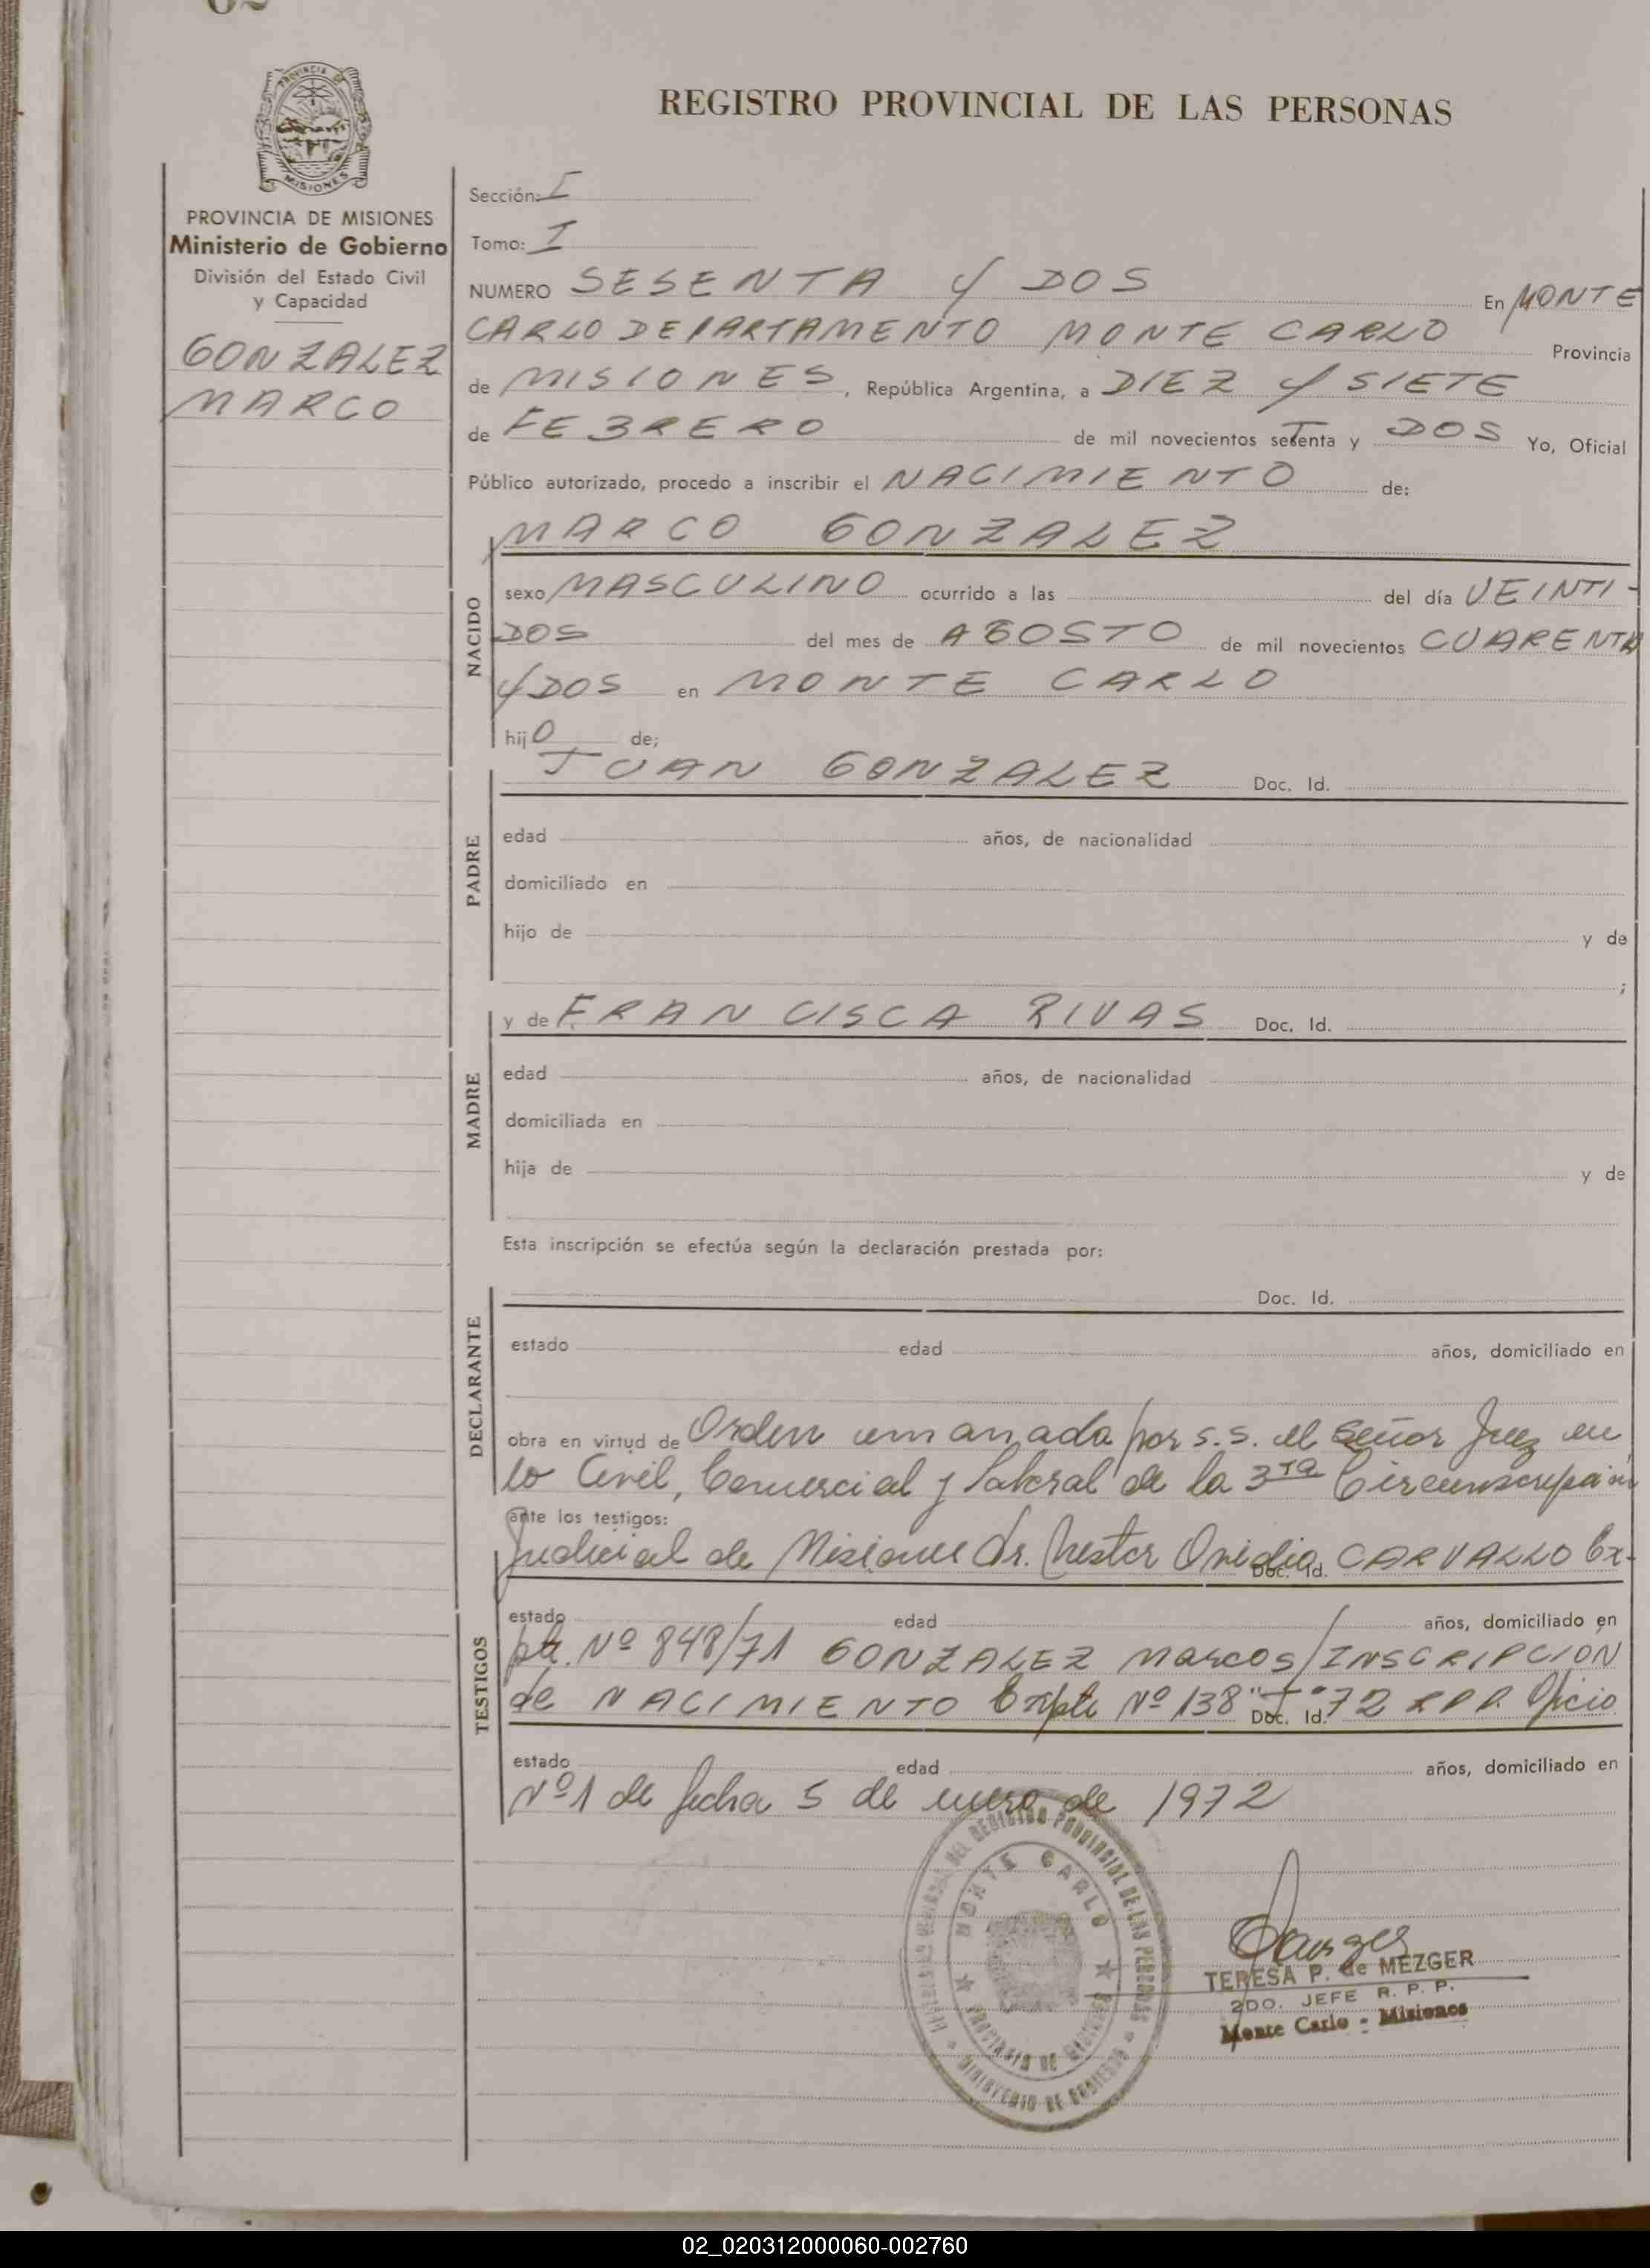 REGISTRO PROVINCIAL DE LAS PERSONAS
MISIONES
PROVINCIA DE MISIONES
Ministerio de Gobierno
División del Estado Civil
y Capacidad
GONZALEZ
MARCO
Sección: I
Tomo: I
NUMERO SESENTA Y DOS En MONTE
CARLO DEPARTAMENTO MONTE CARLO Provincia
de MISIONES, República Argentina, a DIEZ Y SIETE
de FEBRERO de mil novecientos setenta y DOS Yo, Oficial
Público autorizado, procedo a inscribir el NACIMIENTO de:
MARCO GONZALEZ
NACIDO
sexo MASCULINO ocurrido a las del día VEINTI-
DOS del mes de AGOSTO de mil novecientos CUARENTA
Y DOS en MONTE CARLO
hijO de;
JUAN GONZALEZ Doc. Id.
PADRE
edad años, de nacionalidad
domiciliado en
hijo de y de
;
y de FRANCISCA RIVAS Doc. Id.
MADRE
edad años, de nacionalidad
domiciliada en
hija de y de
Esta inscripción se efectúa según la declaración prestada por:
Doc. Id.
DECLARANTE
estado edad años, domiciliado en
obra en virtud de Orden emanada por s.s. el Señor Juez en
lo Civil, Comercial y Laboral de la 3ra Circunscripción
ante los testigos:
Judicial de Misiones Dr. Nestor Ovidio CARVALLO Ex-
Doc. Id.
TESTIGOS
estado edad años, domiciliado en
pte. Nº 848/71 GONZALEZ Marcos/INSCRIPCION
de NACIMIENTO Expte Nº 138 "I" 72 RPP. Oficio
Doc. Id.
estado edad años, domiciliado en
Nº1 de fecha 5 de enero de 1972
REGISTRO PROVINCIAL DE LAS PERSONAS
MONTE CARLO
PROVINCIA DE MISIONES
MINISTERIO DE GOBIERNO
TERESA P. de MEZGER
2DO. JEFE R. P. P.
Monte Carlo - Misiones
02_020312000060-002760